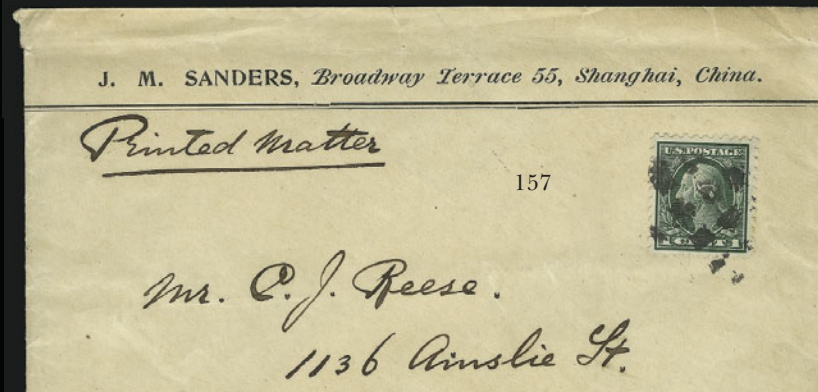 J. M. SANDERS, Broadway Terrace 55, Shanghai, China.
Printed Matter
157
U.S.POSTAGE
1 CENT 1
Mr. C. J. Reese.
1136 Ainslie St.